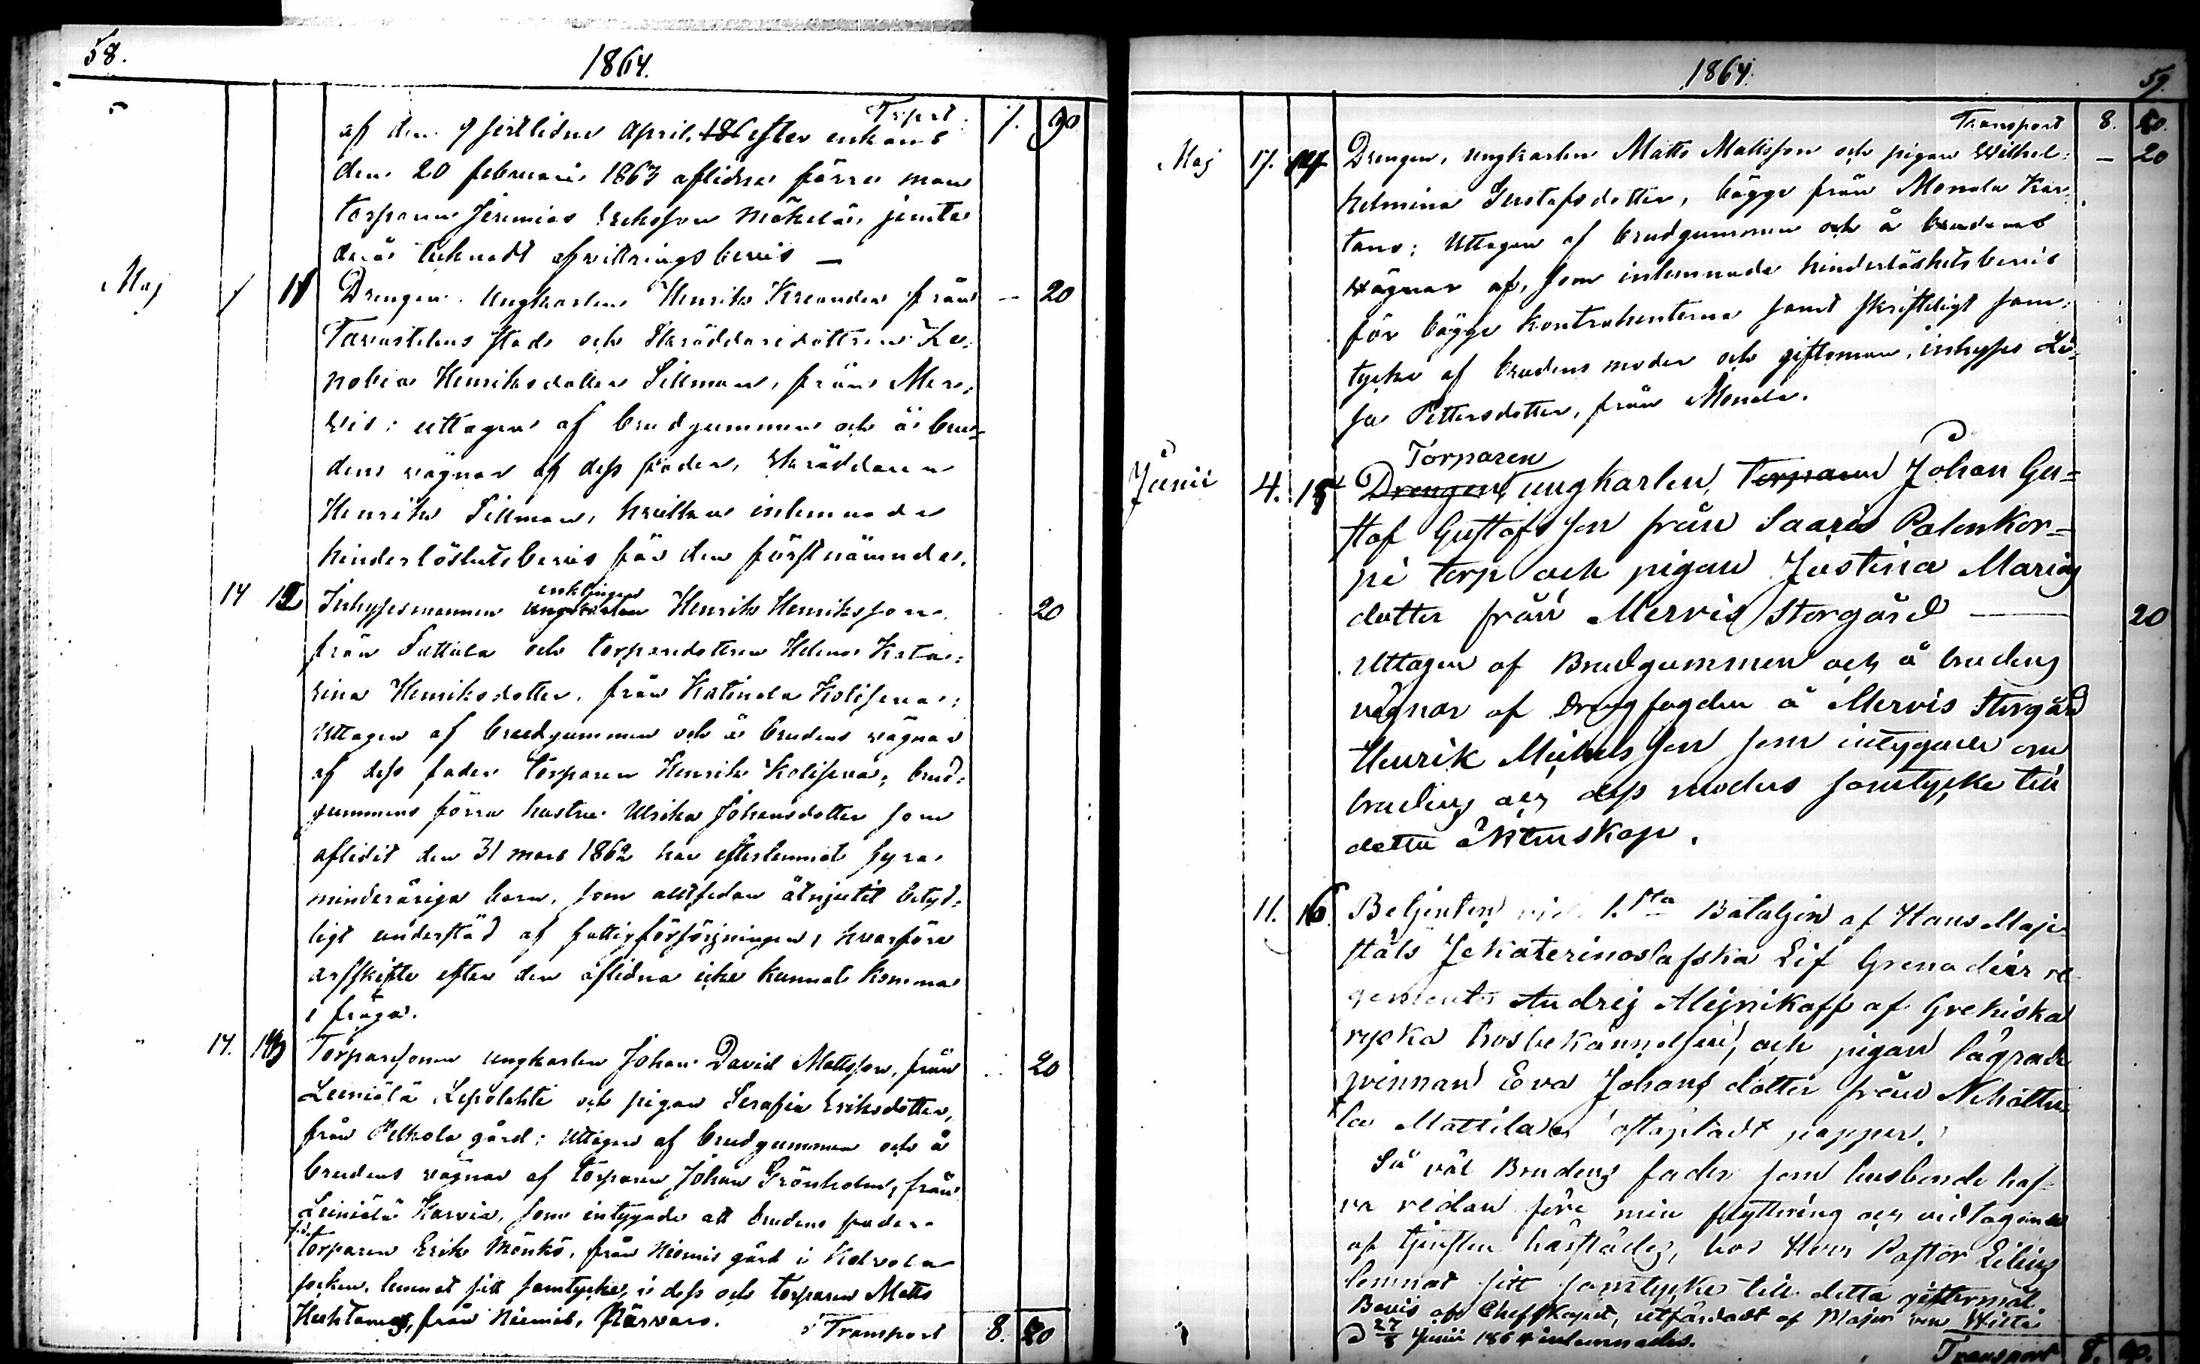 58.
1864.
Trsprt. 7. 90
af den 9 sistlidne April, 186 efter enkans
den 20 februari 1863 aflidne förre man
torparen Jeremias Eriksson Mäkelä, jemte
derå tecknadt afvittringsbevis —
Maj 1 11 Drengen Ungkarlen Henrik Kreander från — 20
Tavastehus stad och Skräddaredottren Ze-
nobia Henriksdotter Sillman, från Mer-
vis: uttagen af brudgummen och å bru-
dens vägnar af dess fader, Skräddaren
Henrik Sillman, hvilken inlemnade
hinderlöshetsbevis för den förstnämnde.
14 12 Inhysesmannen enklingen ungkarlen Henrik Henriksson 20
från Suttila och torparedottren Helena Kata-
rina Henriksdotter, från Katinala Kolisena:
Uttagen af brudgummen och å brudens vägnar
af dess fader torparen Henrik Kolisena; brud-
gummens förra hustru Ulrika Johansdotter som
aflidit den 31 mars 1862 har efterlemnat fyra
minderåriga barn, som alltsedan åtnjutit betyd-
ligt understöd af fattigförsörjningen, hvarföre
arfskifte efter den aflidna icke kunnat komma
i fråga.
14. 13 Torparesonen ungkarlen Johan David Mattsson, från 20
Leiniälä Lepolahti och pigan Serafia Eriksdotter,
från Pelkola gård: Uttagen af brudgummen och å
brudens vägnar af torparen Johan Grönholm, från
Leiniälä Karvia, som intygade att brudens fader
torparen Erik Mönkö, från Niemis gård i Kalvola
socken, lemnat sitt samtycke, i dess och torparen Matts
från Niemis, närvaro.
Transport 8. 50
1864.
59.
Transport 8. 50.
Maj 17. 14 Drengen, ungkarlen Matts Mattsson och pigan Wilhel- — 20
helmina Gustafsdotter, bägge från Monala Kar-
tano; Uttagen af brudgummen och å brudens
vägnar af, som inlemnade hinderlöshetsbevis
för bägge kontrahenterna samt skriftligt sam-
tycke af brudens moder och giftoman, inhyses Li-
sa Pettersdotter, från Monala.
Torparen
Junii 4. 15 Drengen, ungkarlen, torparen Johan Gu-
staf Gustafsson från Saaris Palonkor-
pi torp och pigan Justina Marias
dotter från Mervis Storgård — 20
Uttagen af Brudgummen och å brudens
vägnar af Drengfogden å Mervis Storgård
Henrik Michelsson som intygade om
brudens och dess moders samtycke till
detta äktenskap.
11. 16. Betjenten vid 1.sta Bataljon af Hans Maje-
stäts Jekaterinoslafska Lif Grenadier re-
gemente Andrej Alejnikoff af Grekiska
ryska trosbekännelsen, och pigan lägrade
qvinnan Eva Johans dotter från
la Mattilas, aftagladt papper.
Så väl Brudens fader som husbonde haf-
va redan före min flyttning och vidtagande
af tjensten härstädes, hos Herr Pastor
lemnat sitt samtycke till detta giftermål.
Bevis af Chefskapet, utfärdadt af Major von Witte
d 27/8 Junii 1864 inlemnades.
Transport 8. 90.